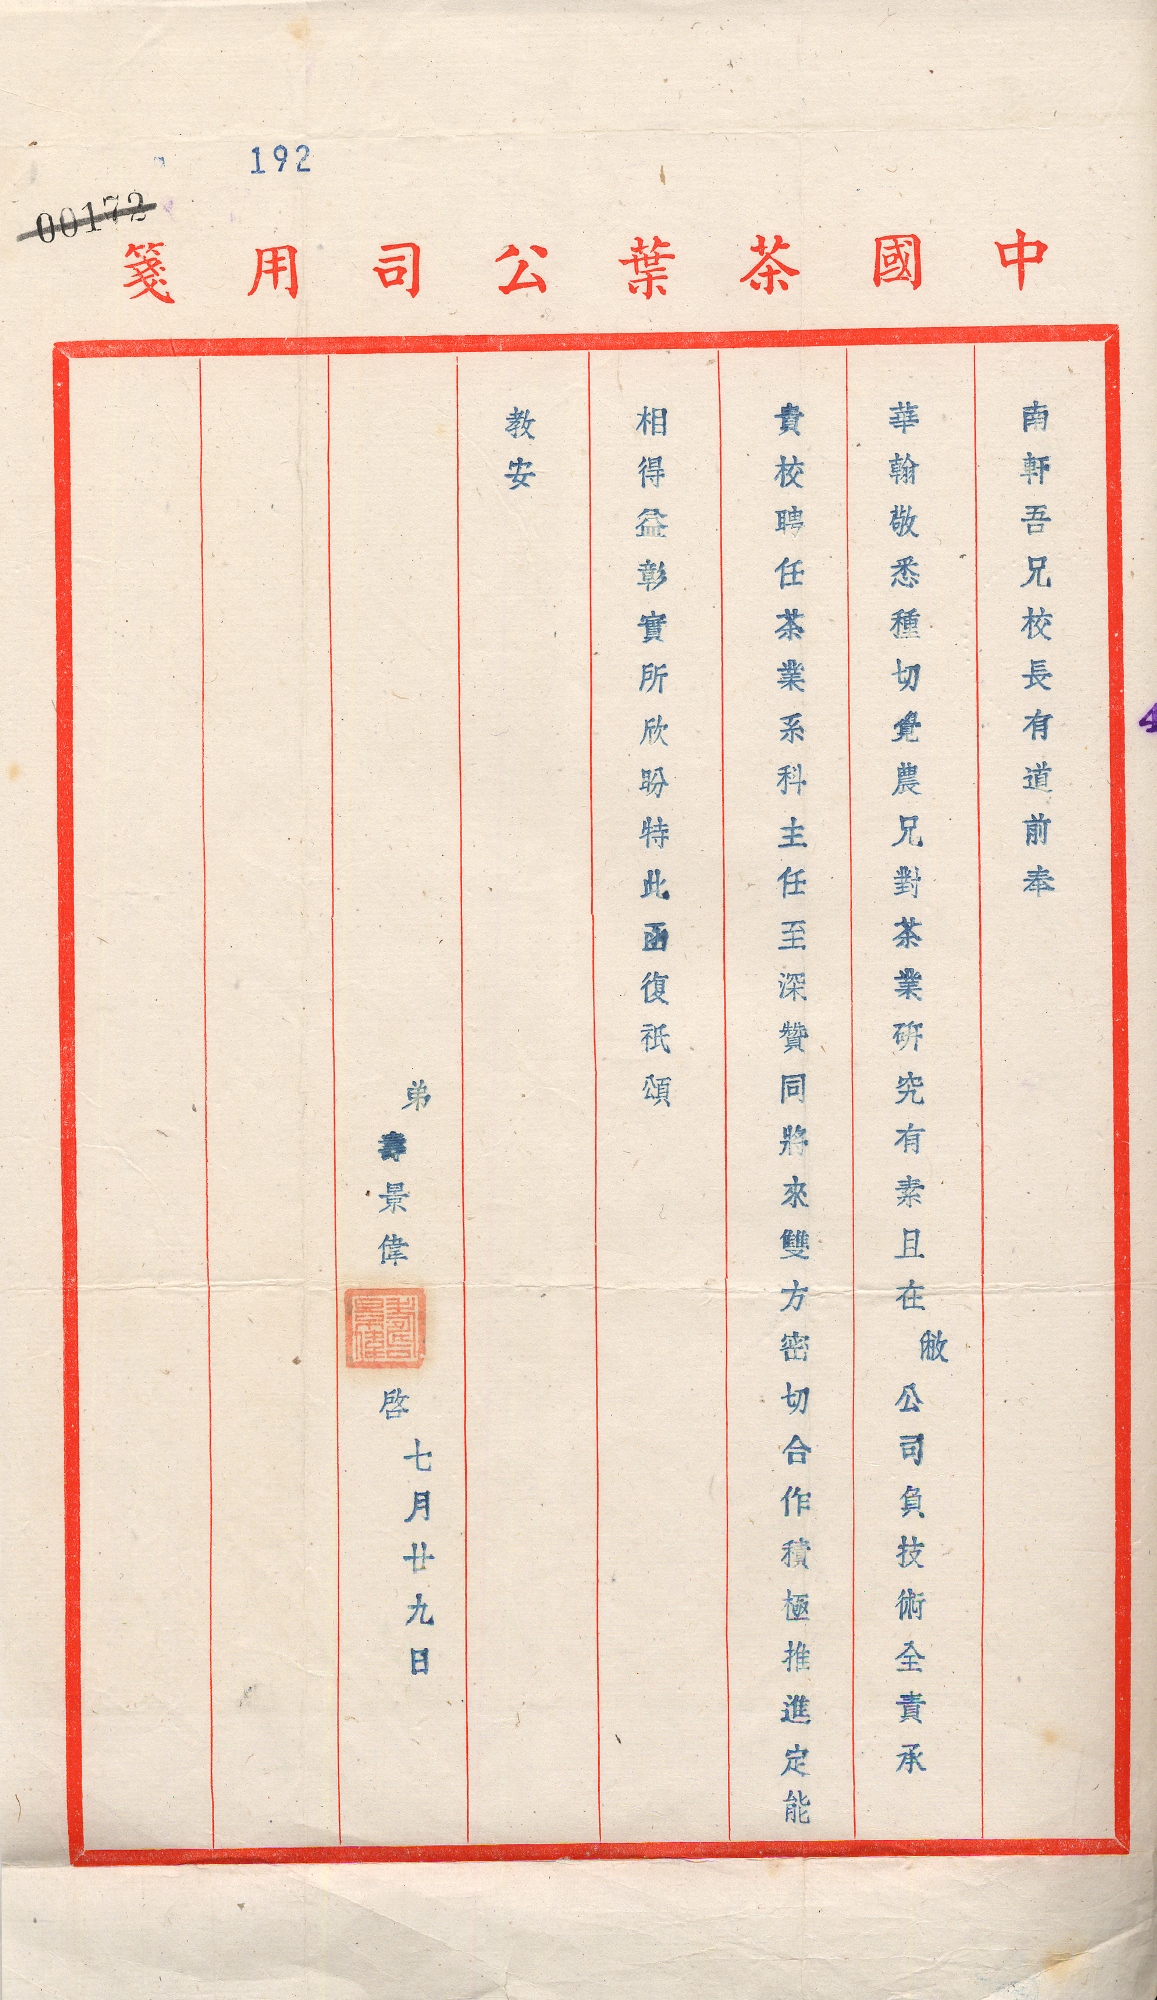 192
00172
中國茶葉公司用箋
南軒吾兄校長有道前奉
華翰敬悉種切覺農兄對茶業研究有素且在敝公司負技術全責承
貴校聘任茶業系科主任至深贊同將來雙方密切合作積極推進定能
相得益彰實所欣盼特此函復祇頌
教安
弟壽景偉
啓七月廿九日